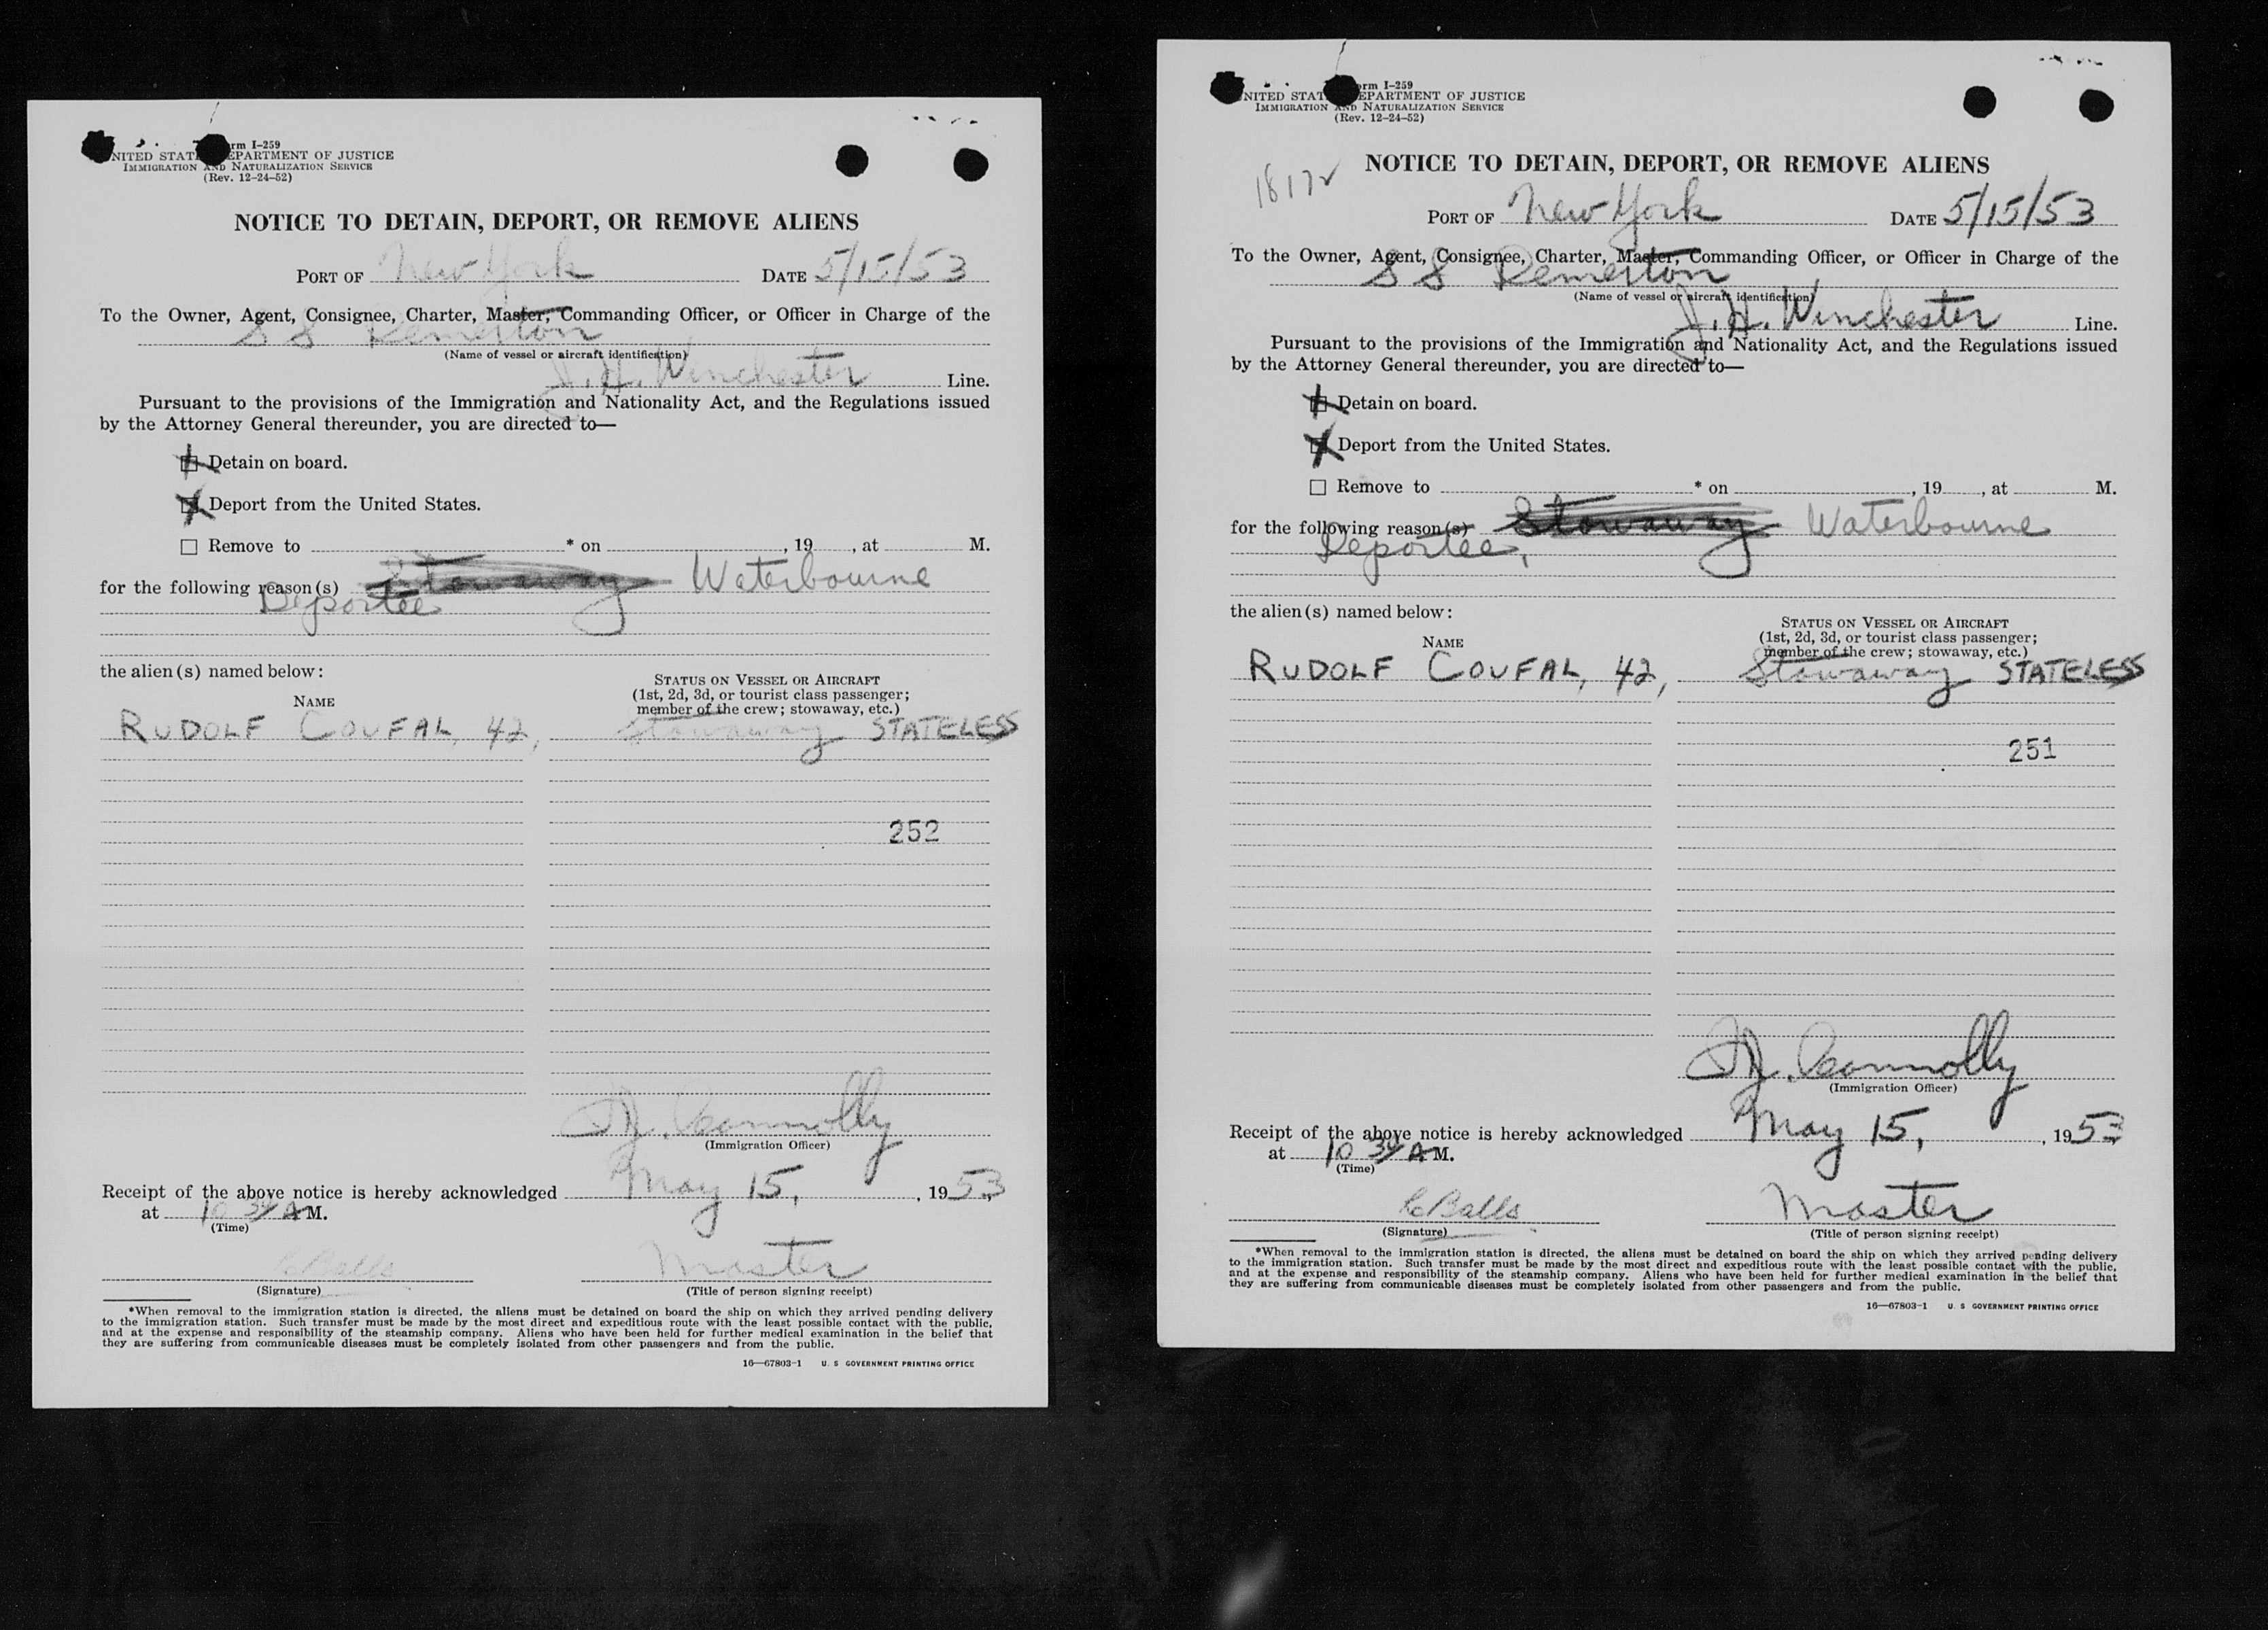 rm I-259
NITED STAT EPARTMENT OF JUSTICE
IMMIGRATION AND NATURALIZATION SERVICE
(Rev. 12-24-52)
NOTICE TO DETAIN, DEPORT, OR REMOVE ALIENS
PORT OF New York DATE 5/15/53
To the Owner, Agent, Consignee, Charter, Master, Commanding Officer, or Officer in Charge of the
S S Remerton
(Name of vessel or aircraft identification)
J. H. Winchester Line.
Pursuant to the provisions of the Immigration and Nationality Act, and the Regulations issued
by the Attorney General thereunder, you are directed to—
Detain on board.
Deport from the United States.
Remove to * on , 19 , at M.
for the following reason(s) Stowaway Waterbourne
Deportee
the alien(s) named below:
NAME
STATUS ON VESSEL OR AIRCRAFT
(1st, 2d, 3d, or tourist class passenger;
member of the crew; stowaway, etc.)
RUDOLF COUFAL, 42, Stowaway STATELESS
252
Connolly
(Immigration Officer)
Receipt of the above notice is hereby acknowledged May 15, , 1953
at 10 34 A M.
(Time)
C Balls Master
(Signature) (Title of person signing receipt)
*When removal to the immigration station is directed, the aliens must be detained on board the ship on which they arrived pending delivery
to the immigration station. Such transfer must be made by the most direct and expeditious route with the least possible contact with the public,
and at the expense and responsibility of the steamship company. Aliens who have been held for further medical examination in the belief that
they are suffering from communicable diseases must be completely isolated from other passengers and from the public.
16—67803-1 U. S GOVERNMENT PRINTING OFFICE
rm I-259
NITED STAT EPARTMENT OF JUSTICE
IMMIGRATION AND NATURALIZATION SERVICE
(Rev. 12-24-52)
NOTICE TO DETAIN, DEPORT, OR REMOVE ALIENS
PORT OF New York DATE 5/15/53
To the Owner, Agent, Consignee, Charter, Master, Commanding Officer, or Officer in Charge of the
S S Remerton
(Name of vessel or aircraft identification)
J. H. Winchester Line.
Pursuant to the provisions of the Immigration and Nationality Act, and the Regulations issued
by the Attorney General thereunder, you are directed to—
Detain on board.
Deport from the United States.
Remove to * on , 19 , at M.
for the following reason(s) Stowaway Waterbourne
Deportee,
the alien(s) named below:
NAME
STATUS ON VESSEL OR AIRCRAFT
(1st, 2d, 3d, or tourist class passenger;
member of the crew; stowaway, etc.)
RUDOLF COUFAL, 42, Stowaway STATELESS
251
Connolly
(Immigration Officer)
Receipt of the above notice is hereby acknowledged May 15, , 1953
at 10 34 A M.
(Time)
C Balls Master
(Signature) (Title of person signing receipt)
*When removal to the immigration station is directed, the aliens must be detained on board the ship on which they arrived pending delivery
to the immigration station. Such transfer must be made by the most direct and expeditious route with the least possible contact with the public,
and at the expense and responsibility of the steamship company. Aliens who have been held for further medical examination in the belief that
they are suffering from communicable diseases must be completely isolated from other passengers and from the public.
16—67803-1 U. S GOVERNMENT PRINTING OFFICE